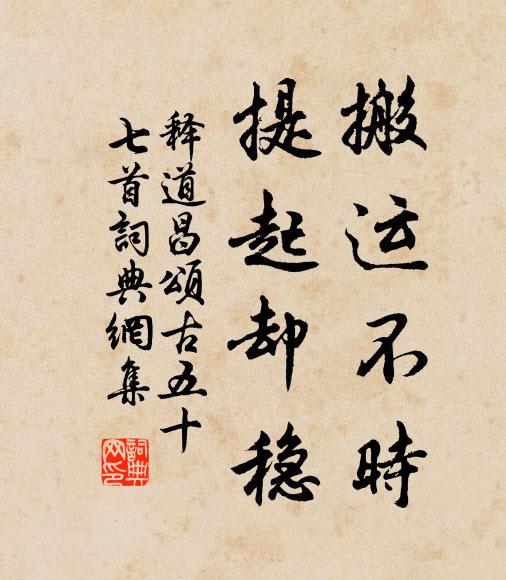 搬运不時
提起却稳
释道昌頌古五十
七首詞典網集
詞典
网印